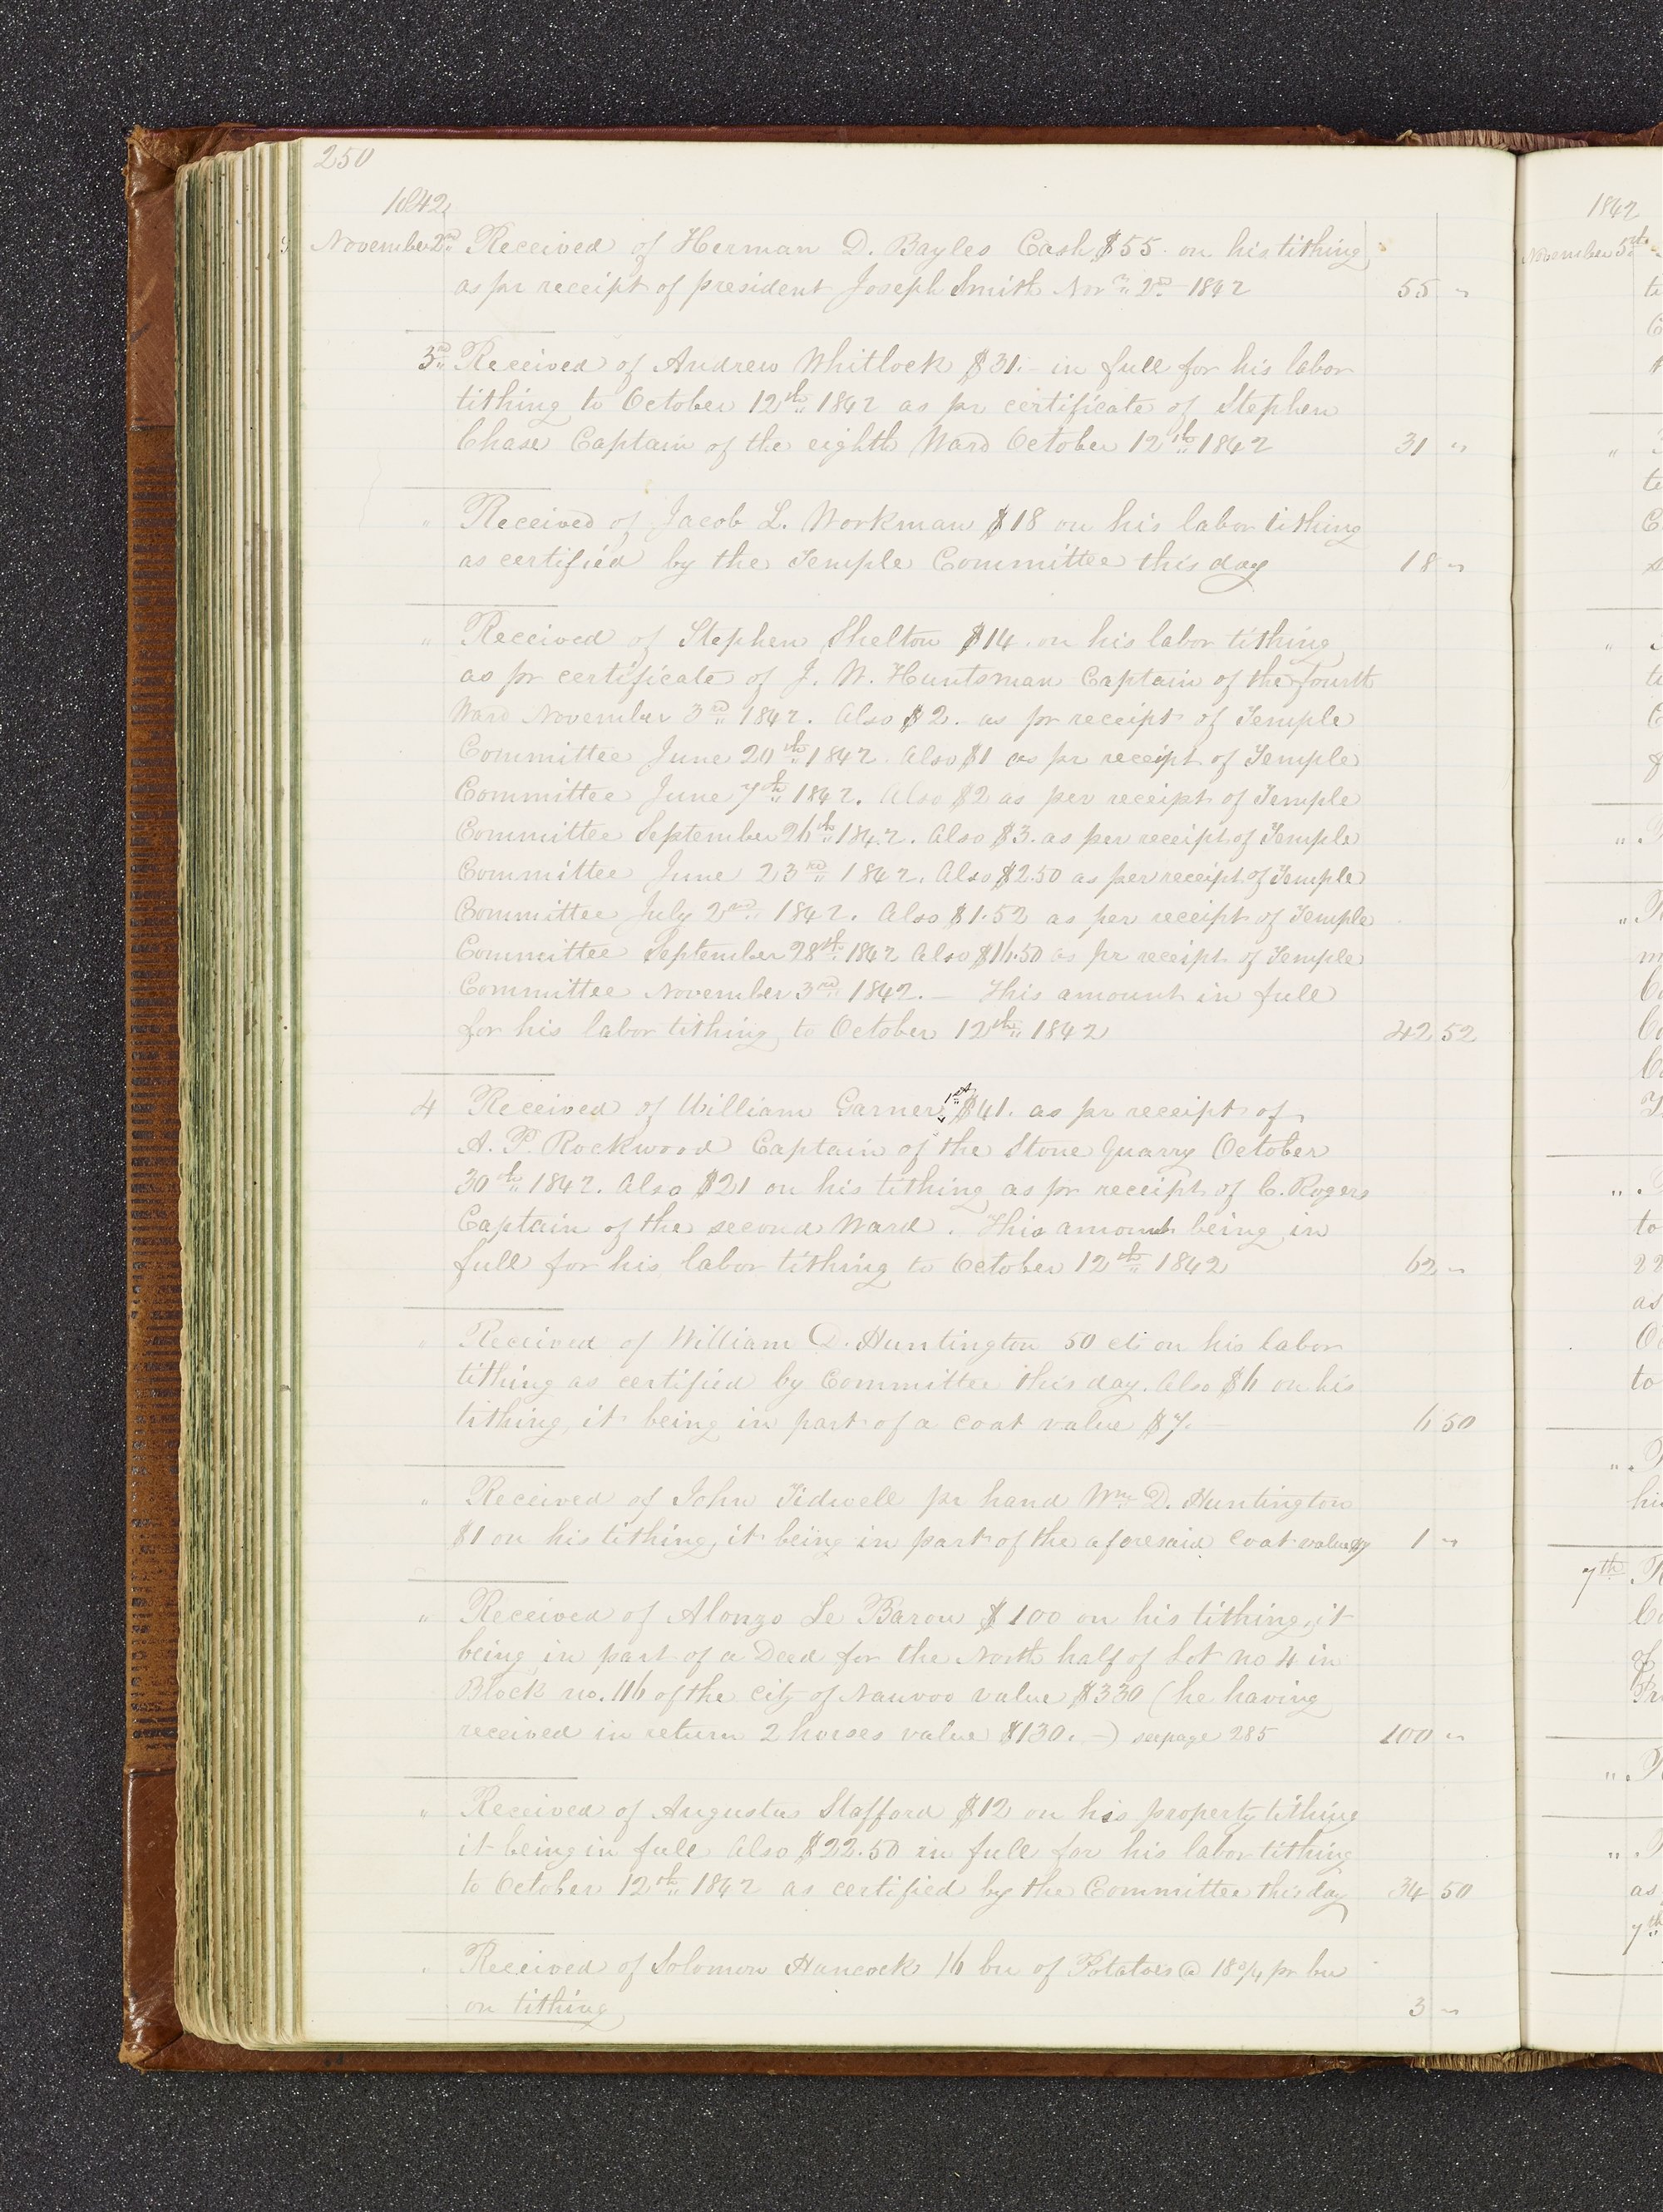 250
1842
November 2nd Received of Herman D. Bayles Cash $55 on his tithing
as pr receipt of president Joseph Smith Novr 2nd 1842 55 "
3rd Received of Andrew Whitlock $31.- in full for his labor
tithing to October 12th 1842 as pr certificate of Stephen
Chase Captain of the eighth Ward October 12th 1842 31 "
" Received of Jacob L. Workman $18 on his labor tithing
as certified by the Temple Committee this day 18 "
" Received of Stephen Shelton $14. on his labor tithing
as pr certificate of J. W. Huntsman Captain of the fourth
Ward November 3rd 1842. Also $2. as pr receipt of Temple
Committee June 20th 1842. Also $1 as pr receipt of Temple
Committee June 7th 1842. Also $2 as per receipt of Temple
Committee September 26th 1842. Also $3. as per receipt of Temple
Committee June 23rd 1842. Also $2.50 as per receipt of Temple
Committee July 2nd 1842. Also $1.52 as per receipt of Temple
Committee September 28th 1842 Also $16.50 as pr receipt of Temple
Committee November 3rd 1842. — This amount in full
for his labor tithing to October 12th 1842 42 52
4 Received of William Garner 1st $41. as pr receipt of
A. P. Rockwood Captain of the Stone Quarry October
30th 1842. Also $21 on his tithing as pr receipt of C. Rogers
Captain of the second Ward. This amount being in
full for his labor tithing to October 12th 1842 62 "
" Received of William D. Huntington 50 cts on his labor
tithing as certified by Committee this day. Also $6 on his
tithing, it being in part of a coat value $7.— 6 50
" Received of John Tidwell pr hand Wm D. Huntington
$1 on his tithing, it being in part of the aforesaid coat value $7 1 "
" Received of Alonzo Le Baron $100 on his tithing, it
being in part of a Deed for the North half of Lot no 4 in
Block no. 116 of the City of Nauvoo value $330 (he having
received in return 2 horses value $130. —) see page 285 100 "
" Received of Augustus Stafford $12 on his property tithing
it being in full Also $22.50 in full for his labor tithing
to October 12th 1842 as certified by the Committee this day 34 50
" Received of Solomon Hancock 16 bu of Potatoes @ 18 3/4 pr bu
on tithing 3 "
1842
November 5th
"
te
"
te
"
"
"
m
"
to
22
as
to
"
his
7th
"
"
as
7th